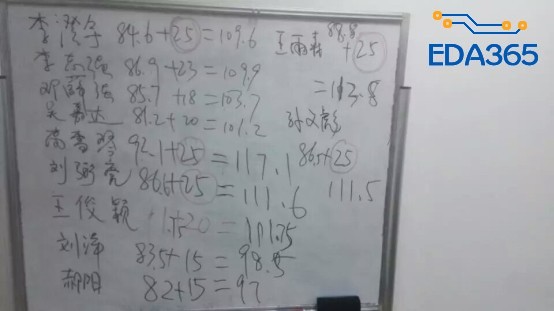 李 84.6+25=109.6
李 86.9+23=109.9
邓 85.7+18=103.7
吴 达 81.2+20=101.2
92.1+25=117.1
刘 亮 86.6+25=111.6
王俊颖 1.75 20=111.75
刘 83.5+15=98.5
郝阳 82+15=97
王雨 88.8
+25
=113.8
孙文彪
86.5+25
111.5
EDA365